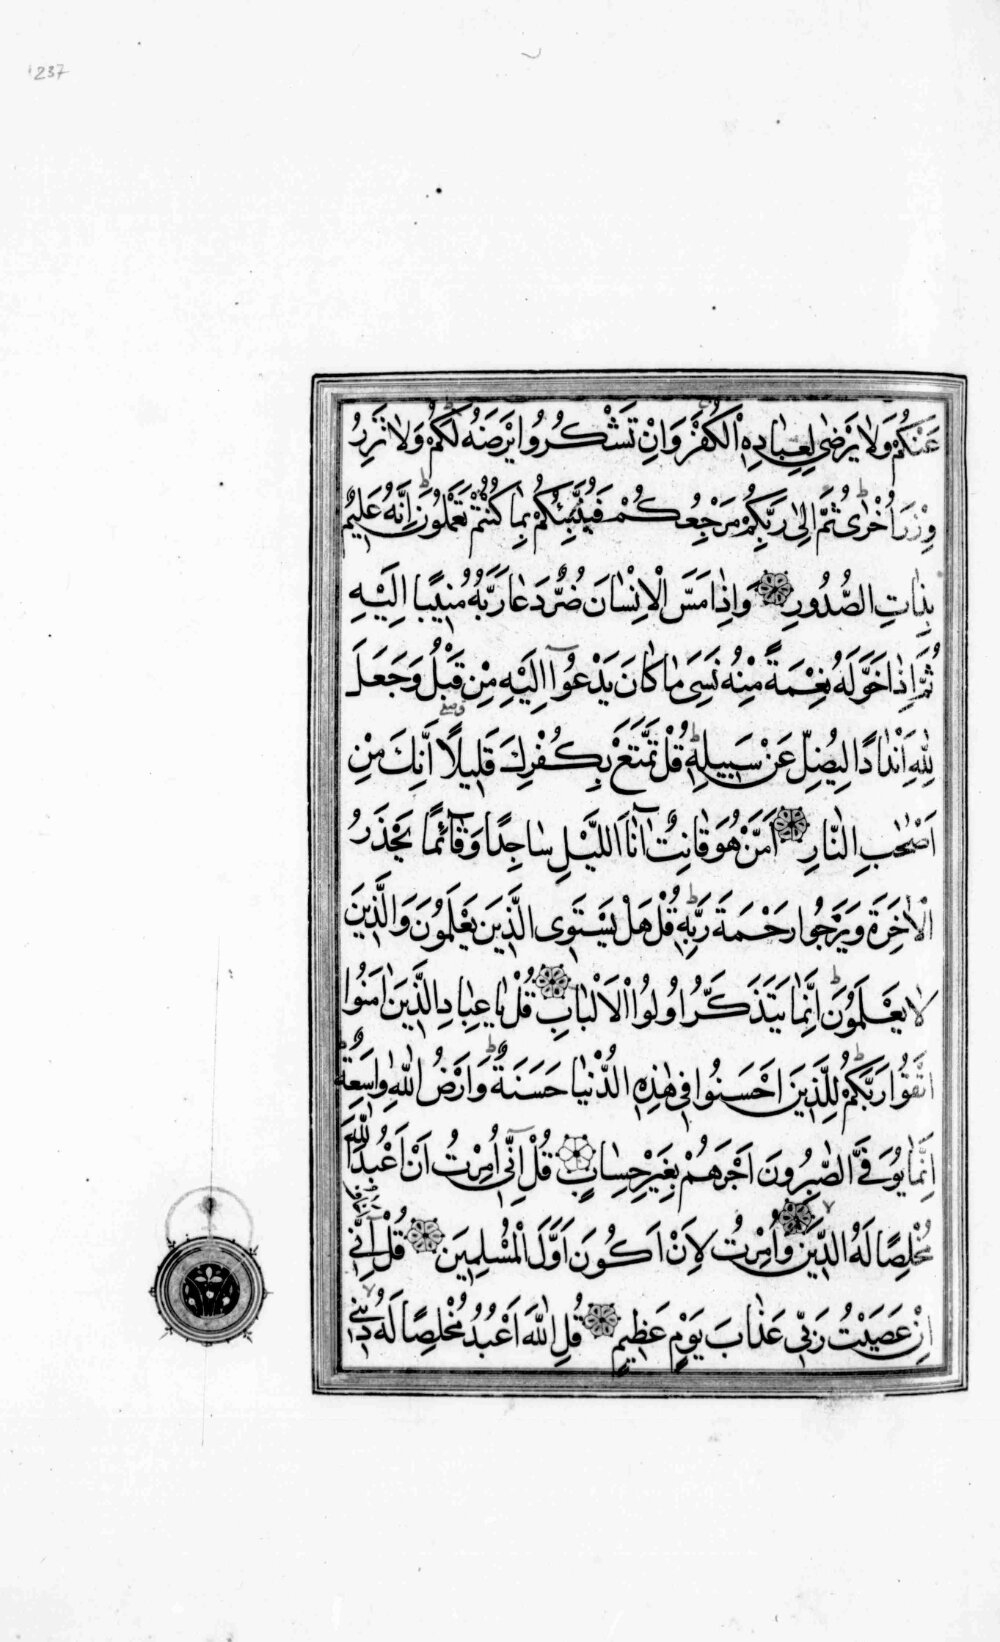 237
عَنْكُمْ وَلَا يَرْضٰى لِعِبَادِهِ الْكُفْرَ وَاِنْ تَشْكُرُوا يَرْضَهُ لَكُمْ وَلَا تَزِرُ
وِزْرَ اُخْرٰى ثُمَّ اِلٰى رَبِّكُمْ مَرْجِعُكُمْ فَيُنَبِّئُكُمْ بِمَا كُنْتُمْ تَعْمَلُونَ اِنَّهُ عَلِيمٌ
بِذَاتِ الصُّدُورِ وَاِذَا مَسَّ الْاِنْسَانَ ضُرٌّ دَعَا رَبَّهُ مُنِيبًا اِلَيْهِ
ثُمَّ اِذَا خَوَّلَهُ نِعْمَةً مِنْهُ نَسِيَ مَا كَانَ يَدْعُوٓا اِلَيْهِ مِنْ قَبْلُ وَجَعَلَ
لِلّٰهِ اَنْدَادًا لِيُضِلَّ عَنْ سَبِيلِهِ قُلْ تَمَتَّعْ بِكُفْرِكَ قَلِيلًا اِنَّكَ مِنْ
اَصْحَابِ النَّارِ اَمَّنْ هُوَ قَانِتٌ اٰنَآءَ الَّيْلِ سَاجِدًا وَقَآئِمًا يَحْذَرُ
الْاٰخِرَةَ وَيَرْجُوا رَحْمَةَ رَبِّهِ قُلْ هَلْ يَسْتَوِى الَّذِينَ يَعْلَمُونَ وَالَّذِينَ
لَا يَعْلَمُونَ اِنَّمَا يَتَذَكَّرُ اُولُوا الْاَلْبَابِ قُلْ يَا عِبَادِ الَّذِينَ اٰمَنُوا
اتَّقُوا رَبَّكُمْ لِلَّذِينَ اَحْسَنُوا فِى هٰذِهِ الدُّنْيَا حَسَنَةٌ وَاَرْضُ اللّٰهِ وَاسِعَةٌ
اِنَّمَا يُوَفَّى الصَّابِرُونَ اَجْرَهُمْ بِغَيْرِ حِسَابٍ قُلْ اِنِّٓى اُمِرْتُ اَنْ اَعْبُدَ اللّٰهَ
مُخْلِصًا لَهُ الدِّينَ وَاُمِرْتُ لِاَنْ اَكُونَ اَوَّلَ الْمُسْلِمِينَ قُلْ اِنِّٓى اَخَافُ
اِنْ عَصَيْتُ رَبِّى عَذَابَ يَوْمٍ عَظِيمٍ قُلِ اللّٰهَ اَعْبُدُ مُخْلِصًا لَهُ دِينِى